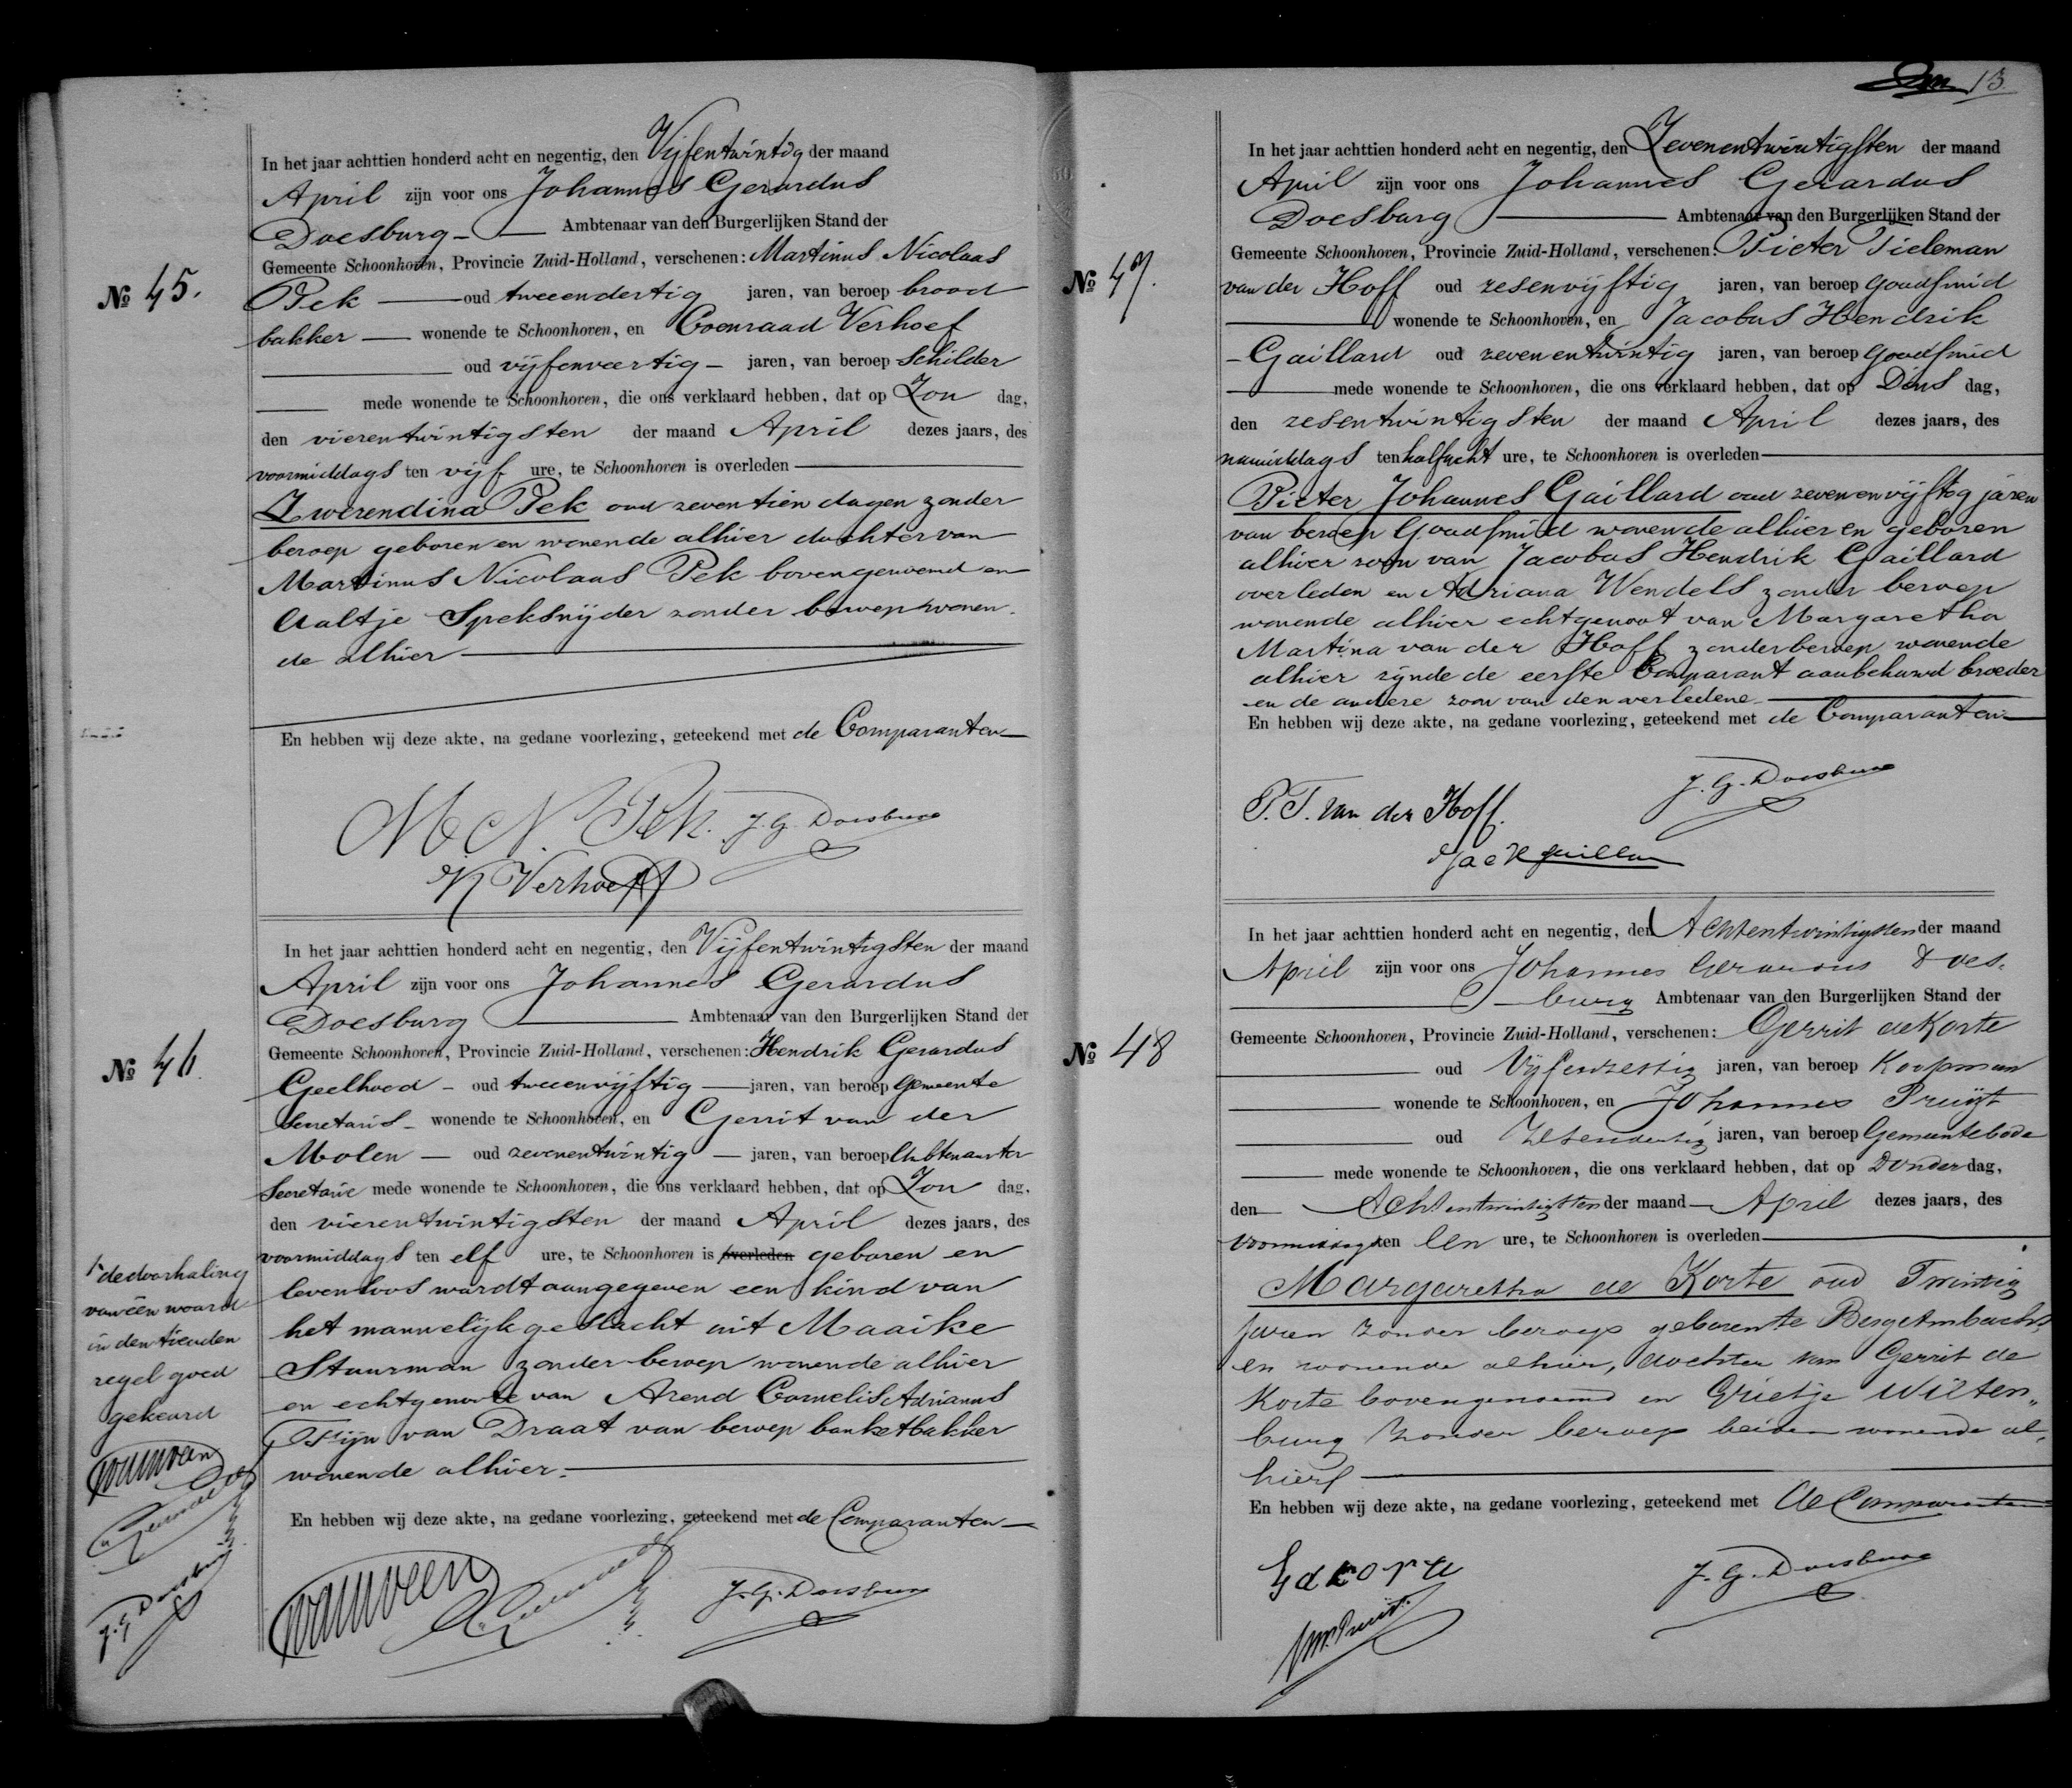 13.
No 45.
In het jaar achttien honderd acht en negentig, den Vijfentwintig der maand
April zijn voor ons Johannes Gerardus
Doesburg Ambtenaar van den Burgerlijken Stand der
Gemeente Schoonhoven, Provincie Zuid-Holland, verschenen: Martinus Nicolaas
Pek oud tweeendertig jaren, van beroep brood
bakker wonende te Schoonhoven, en Coenraad Verhoef
oud vijfenveertig jaren, van beroep Schilder
mede wonende te Schoonhoven, die ons verklaard hebben, dat op Zon dag,
den vierentwintigsten der maand April dezes jaars, des
voormiddags ten vijf ure, te Schoonhoven is overleden
Zwerendina Pek oud zeventien dagen zonder
beroep geboren en wonende alhier dochter van
Martinus Nicolaas Pek bovengenoemd en
Aaltje Speksnijder zonder beroep wonen
de alhier
En hebben wij deze akte, na gedane voorlezing, geteekend met de Comparanten
M. N. Pek. J. G. Doesburg
K Verhoeff
No 46.
In het jaar achttien honderd acht en negentig, den Vijfentwintigsten der maand
April zijn voor ons Johannes Gerardus
Doesburg Ambtenaar van den Burgerlijken Stand der
Gemeente Schoonhoven, Provincie Zuid-Holland, verschenen: Hendrik Gerardus
Geelhoed oud tweeenvijftig jaren, van beroep Gemeente
Secretaris wonende te Schoonhoven, en Gerrit van der
Molen oud zevenentwintig jaren, van beroep Ambtenaar ter
Secretarie mede wonende te Schoonhoven, die ons verklaard hebben, dat op Zon dag,
den vierentwintigsten der maand April dezes jaars, des
voormiddags ten elf ure, te Schoonhoven is overleden geboren en
levenloos wordt aangegeven een kind van
het mannelijk geslacht uit Maaike
Stuurman zonder beroep wonende alhier
en echtgenoote van Arend Cornelis Adrianus
Tsijn van Draat van beroep banketbakker
wonende alhier.
En hebben wij deze akte, na gedane voorlezing, geteekend met de Comparanten
J. G. Doesburg
de doorhaling
van één woord
in den tienden
regel goed
gekeurd
J. G. Doesburg
No 47.
In het jaar achttien honderd acht en negentig, den Zevenentwintigsten der maand
April zijn voor ons Johannes Gerardus
Doesburg Ambtenaar van den Burgerlijken Stand der
Gemeente Schoonhoven, Provincie Zuid-Holland, verschenen: Pieter Tieleman
van der Hoff oud zesenvijftig jaren, van beroep goudsmid
wonende te Schoonhoven, en Jacobus Hendrik
Gaillard oud zevenentwintig jaren, van beroep goudsmid
mede wonende te Schoonhoven, die ons verklaard hebben, dat op Dins dag,
den zesentwintigsten der maand April dezes jaars, des
namiddags ten halfacht ure, te Schoonhoven is overleden
Pieter Johannes Gaillard oud zevenenvijftig jaren
van beroep Goudsmid wonende alhier en geboren
alhier zoon van Jacobus Hendrik Gaillard
overleden en Adriana Wendels zonder beroep
wonende alhier echtgenoot van Margaretha
Martina van der Hoff zonder beroep wonende
alhier zijnde de eerste Comparant aanbehuwd broeder
en de andere zoon van den overledene
En hebben wij deze akte, na gedane voorlezing, geteekend met de Comparanten
P. T. van der Hoff. J. G. Doesburg
No 48
In het jaar achttien honderd acht en negentig, den Achtentwintigsten der maand
April zijn voor ons Johannes Gerardus Does-
burg Ambtenaar van den Burgerlijken Stand der
Gemeente Schoonhoven, Provincie Zuid-Holland, verschenen: Gerrit de Korte
oud Vijfenzestig jaren, van beroep Koopman
wonende te Schoonhoven, en Johannes Pruijt
oud Zesendertig jaren, van beroep Gemeentebode
mede wonende te Schoonhoven, die ons verklaard hebben, dat op Donder dag,
den Achtentwintigsten der maand April dezes jaars, des
Voormiddags ten Een ure, te Schoonhoven is overleden
Margaretha de Korte oud Twintig
jaren zonder beroep geboren te Bergambacht
en wonende alhier, dochter van Gerrit de
Korte bovengenoemd en Grietje Wilten„
burg zonder beroep beiden wonende al„
hier
En hebben wij deze akte, na gedane voorlezing, geteekend met de Comparanten
G d Korte J. G. Doesburg